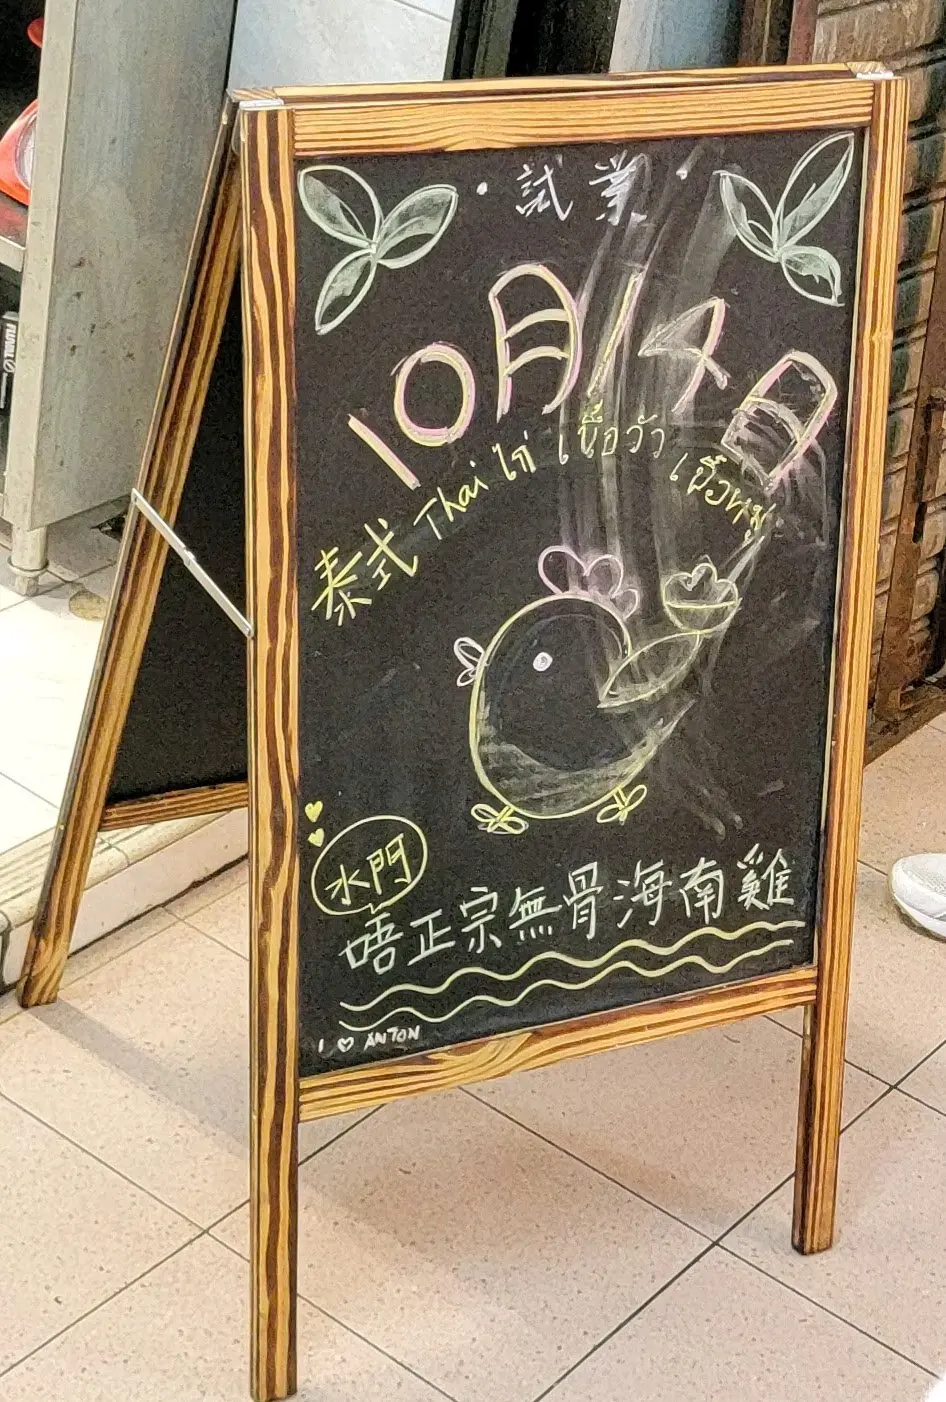 · 試業 ·
10月14日
泰式 Thai ไก่ เนื้อวัว เนื้อหมู
水門
唔正宗無骨海南雞
I ♡ ANTON